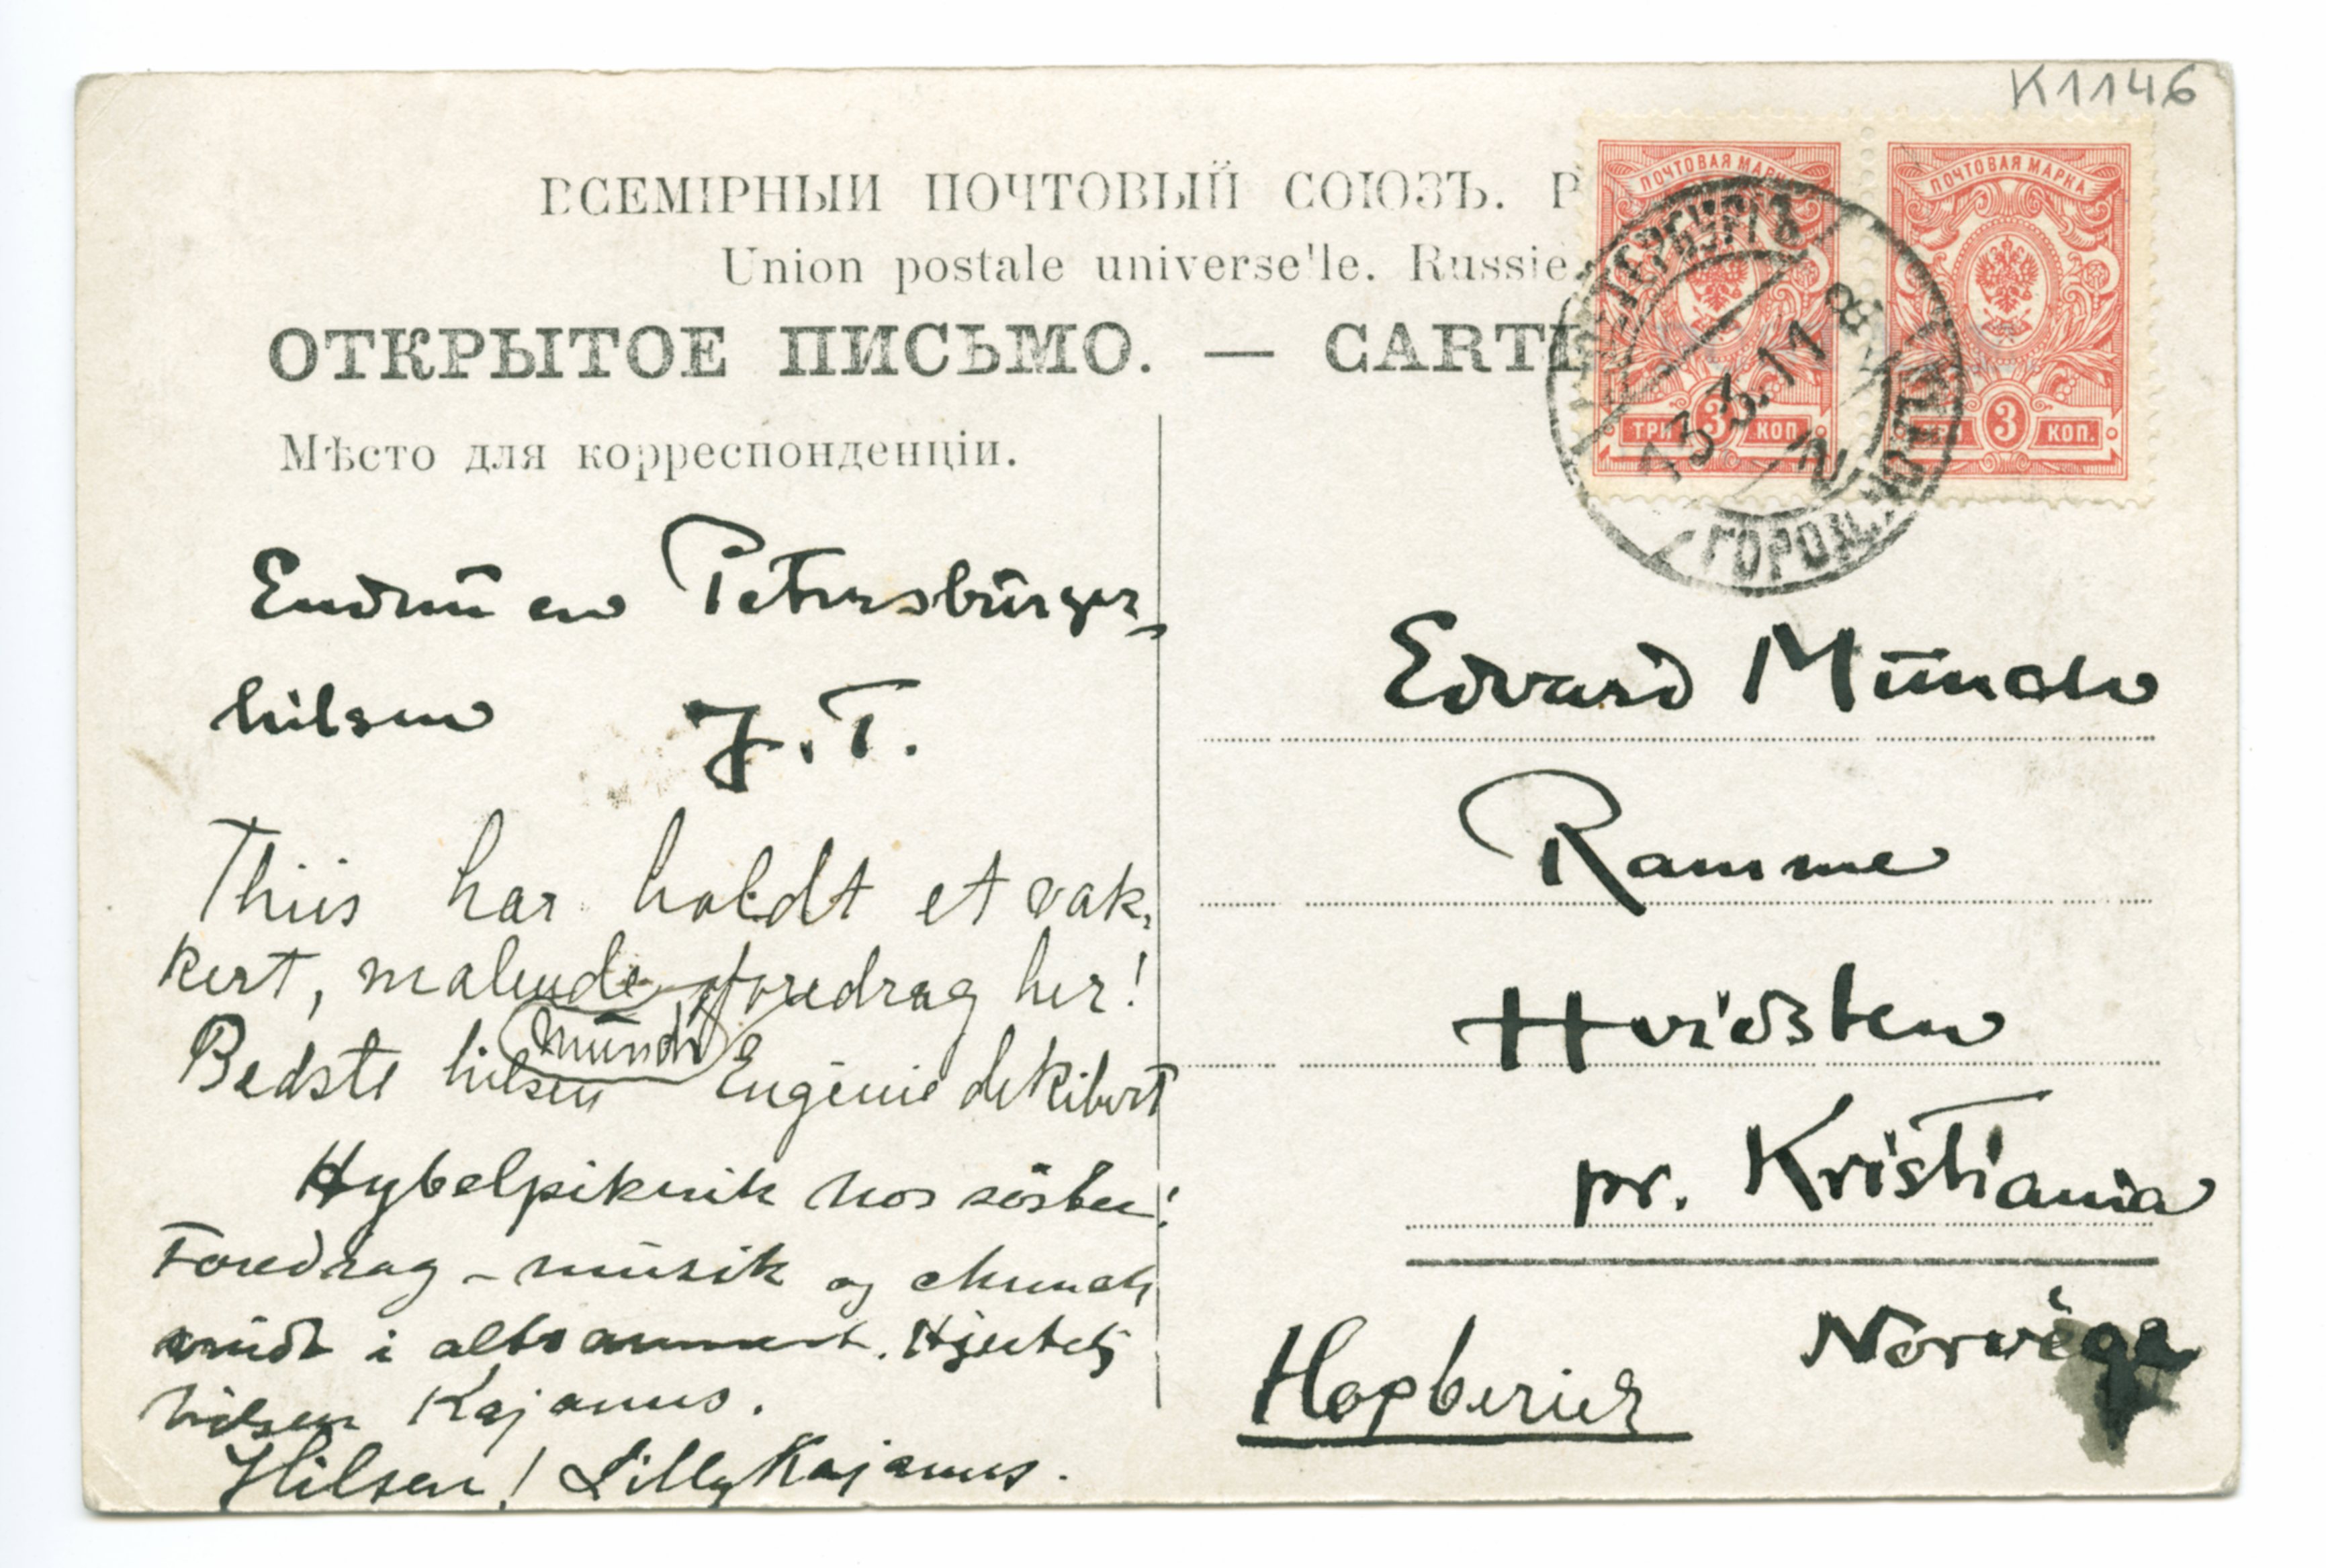 K1146
ВСЕМІРНЫЙ ПОЧТОВЫЙ СОЮЗЪ. Р
Union postale universelle. Russie.
ОТКРЫТОЕ ПИСЬМО. — CARTE
Мѣсто для корреспонденціи.
ПОЧТОВАЯ МАРКА
ТРИ 3 КОП.
ПОЧТОВАЯ МАРКА
3 КОП.
13.3.11
8
N
Endnü en Petersbürger-
hilsen J. T.
Thiis har holdt et vak-
kert, malende foredrag her!
Münch
Bedste hilsen Eugénie de Ribert
Hybelpiknik hos söster!
Foredrag – müsik og Munch
ründt i altsammert. Hjertelig
hilsen Kajanus.
Hilsen! Lilly Kajanus.
Edvard Münch
Ramme
Hvidsten
pr. Kristiania
Norvège